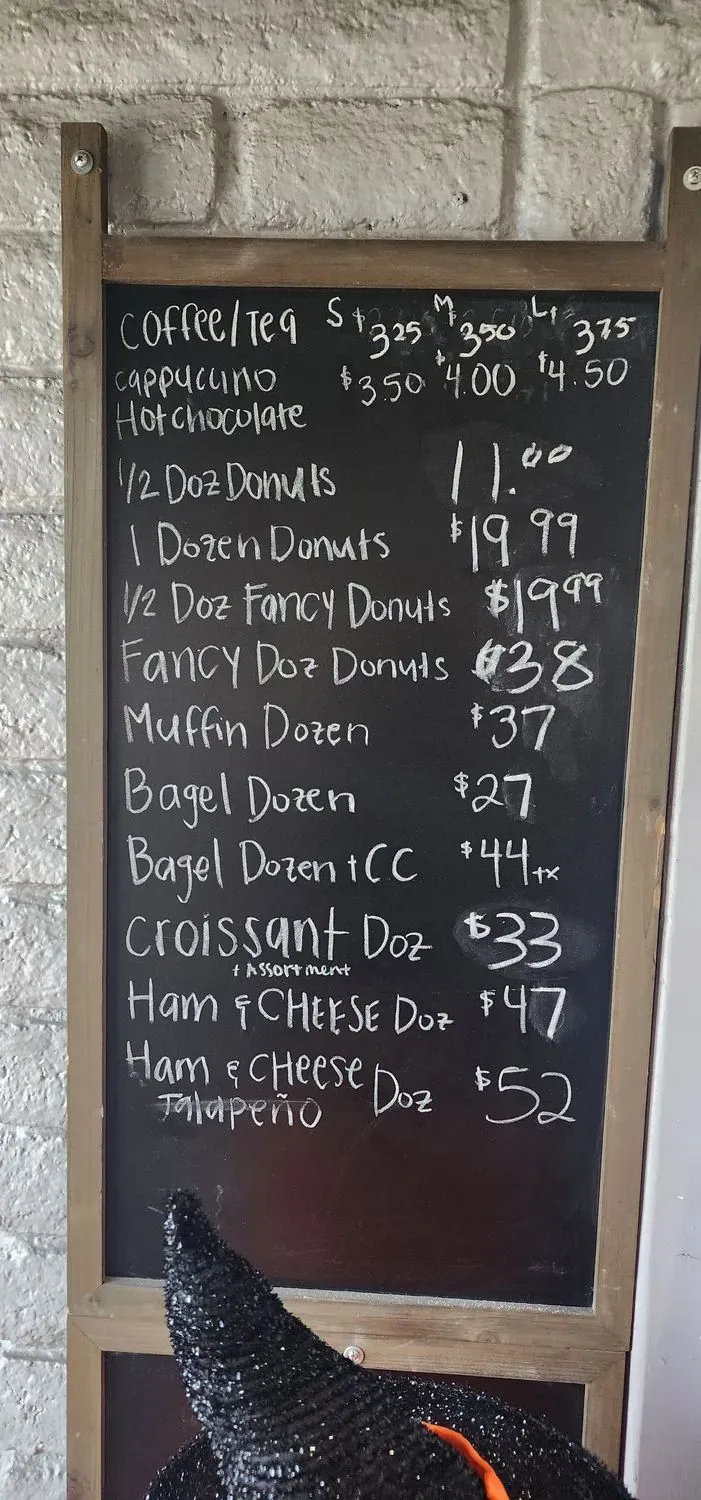 Coffee/Tea S $325 M $350 L $375
cappuccino $3.50 $4.00 $4.50
Hot chocolate
1/2 Doz Donuts 11.00
1 Dozen Donuts $19 99
1/2 Doz Fancy Donuts $19 99
Fancy Doz Donuts $38
Muffin Dozen $37
Bagel Dozen $27
Bagel Dozen + CC $44 +x
Croissant Doz $33
+ Assortment
Ham & CHEESE Doz $47
Ham & CHeese Doz $52
Jalapeño